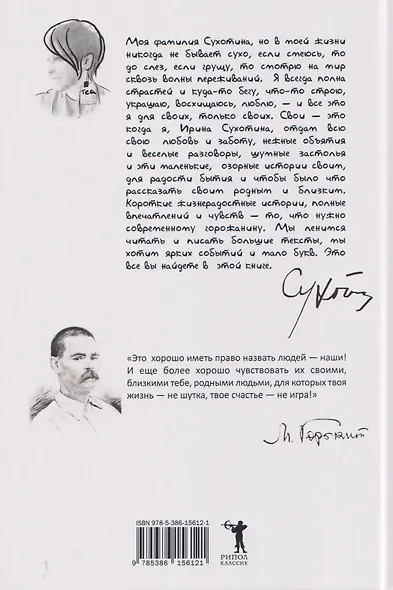 Моя фамилия Сухотина, но в моей жизни
никогда не бывает сухо, если смеюсь, то
до слез, если грущу, то смотрю на мир
сквозь волны переживаний. Я всегда полна
страстей и куда-то бегу, что-то строю,
украшаю, восхищаюсь, люблю, — и все это
я для своих, только своих. Свои — это
когда я, Ирина Сухотина, отдам всю
свою любовь и заботу, нежные объятия
и веселые разговоры, шумные застолья
и эти маленькие, озорные истории своим,
для радости бытия и чтобы было что
рассказать своим родным и близким.
Короткие жизнерадостные истории, полные
впечатлений и чувств — то, что нужно
современному горожанину. Мы ленимся
читать и писать большие тексты, мы
хотим ярких событий и мало букв. Это
все вы найдете в этой книге.
«Это хорошо иметь право назвать людей — наши!
И еще более хорошо чувствовать их своими,
близкими тебе, родными людьми, для которых твоя
жизнь — не шутка, твое счастье — не игра!»
М. Горький
ISBN 978-5-386-15612-1
9 785386 156121
РИПОЛ
КЛАССИК